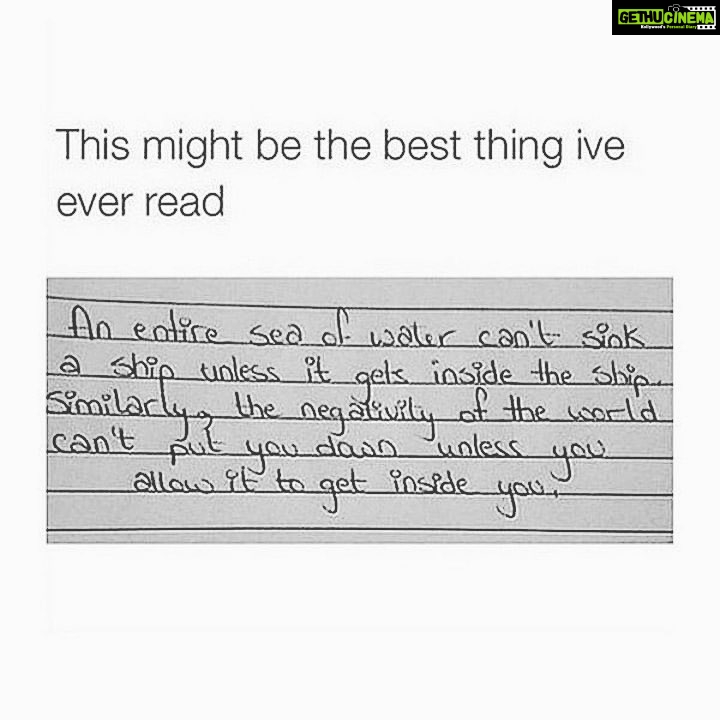 GETHUCINEMA
Kollywood's Personal Diary
This might be the best thing ive
ever read
An entire sea of water can't sink
a ship unless it gets inside the ship.
Similarly, the negativity of the world
can't put you down unless you
allow it to get inside you.